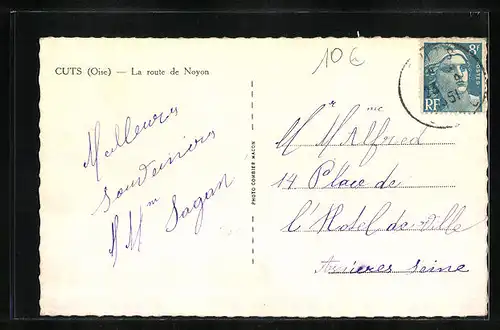 CUTS (Oise) — La route de Noyon
10€
8F
RF
51
PHOTO COMBIER MACON
Meilleurs
souvenirs
Mme Sagan
Mr Mme Alfred
14 Place de
l'Hotel de Ville
Asnières Seine